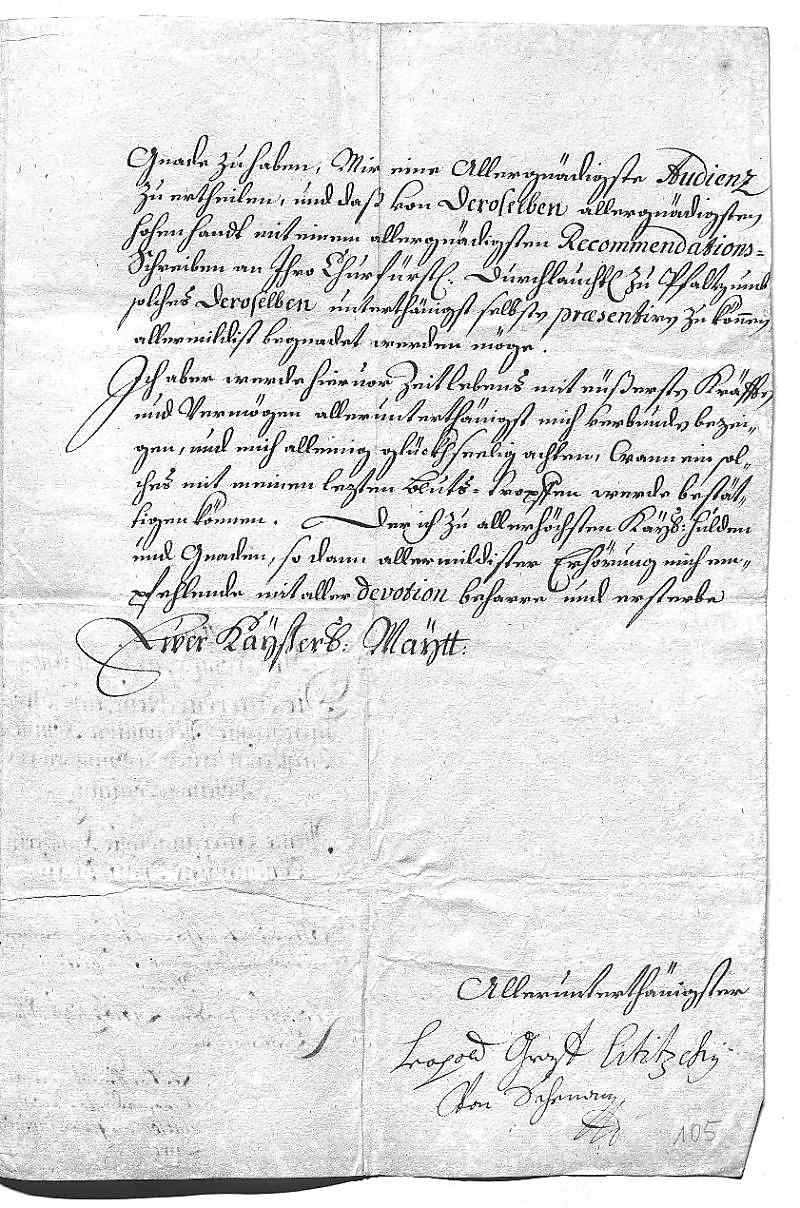 Gnade zu haben, Mir eine Allergnädigste Audienz
zu ertheilen, und daß von Deroselben allergnädigsten
hohen handt mit einem allergnädigsten Recommendations-
Schreiben an Ihro Churfürstl: Durchlaucht zu Pfaltz und
solches Deroselben unterthänigst selbsten præsentiren zu können
allermildist begnadet werden möge.
Ich aber werde hieruor Zeitlebens mit eüßersten Kräfften
und Vermögen allerunterthänigst mich verbunden bezei-
gen, und mich alleinig glückhseelig achten, Wann ein sol-
ches mit meinen lezten Bluts-tropffen werde bestät-
tigen können. Der ich zu allerhöchsten Kayß: hulden
und Gnaden, so dann allermildister Erhörung mich em-
pfehlende mit aller devotion beharre und ersterbe
Ewer Kaysserß: Maytt:
Allerunterthänigster
Leopold
Von
105